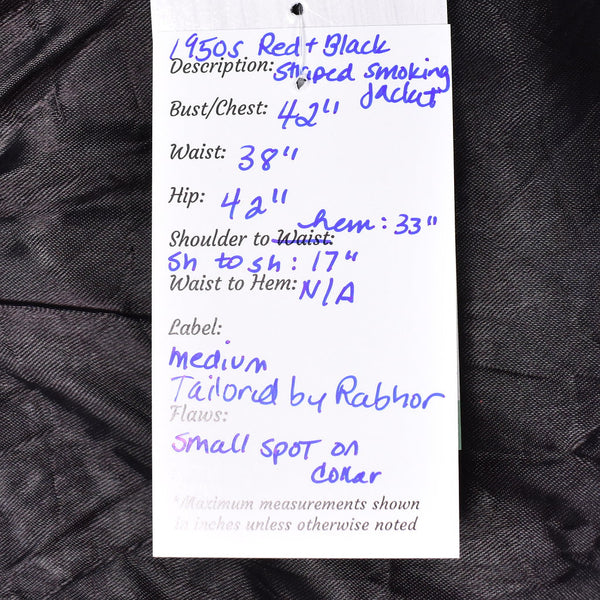 1950s Red + Black
Description: Striped smoking
Jacket
Bust/Chest: 42"
Waist: 38"
Hip: 42"
hem: 33"
Shoulder to Waist:
Sh to sh: 17"
Waist to Hem: N/A
Label:
Medium
Tailored by Rabhor
Flaws:
Small spot on
Collar
*Maximum measurements shown
in inches unless otherwise noted